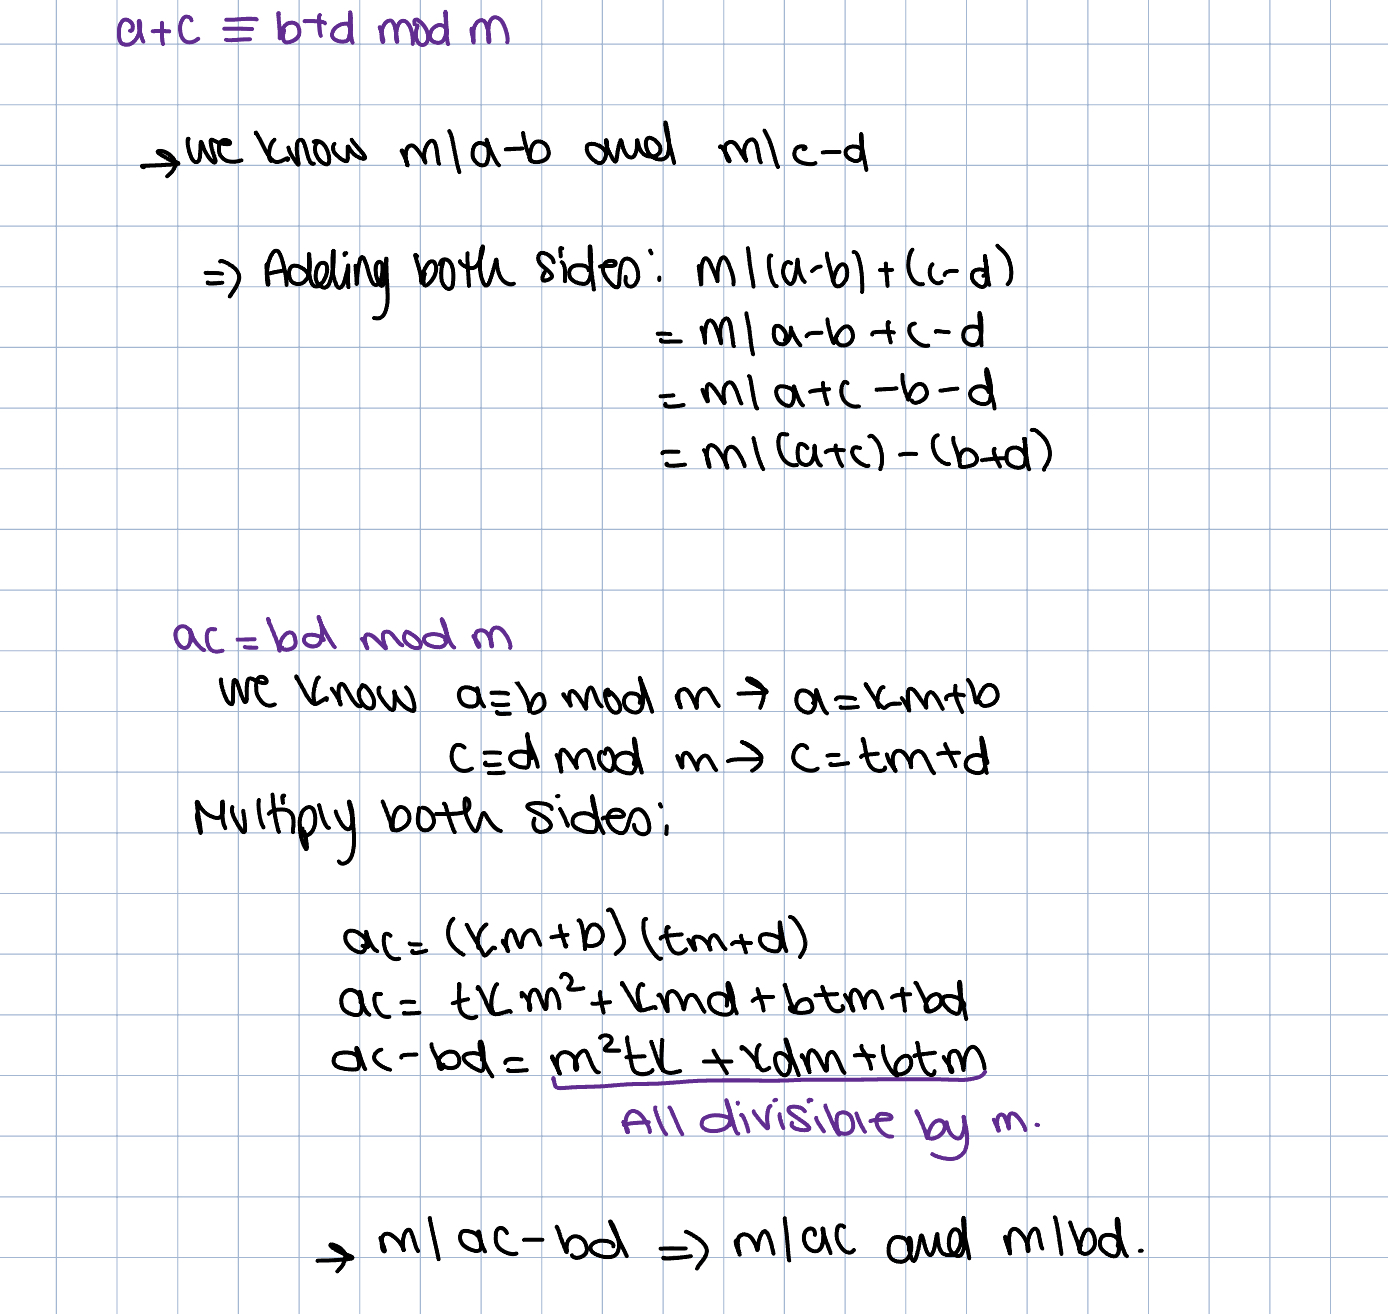 a+c ≡ b+d mod m
→ we know m|a-b and m|c-d
=> Adding both sides: m|(a-b)+(c-d)
= m| a-b+c-d
= m| a+c-b-d
= m|(a+c)-(b+d)
ac = bd mod m
we know a≡b mod m → a=km+b
c≡d mod m → c=tm+d
Multiply both sides:
ac= (km+b)(tm+d)
ac= tkm²+kmd+btm+bd
ac-bd= m²tk+kdm+btm
All divisible by m.
→ m| ac-bd => m|ac and m|bd.